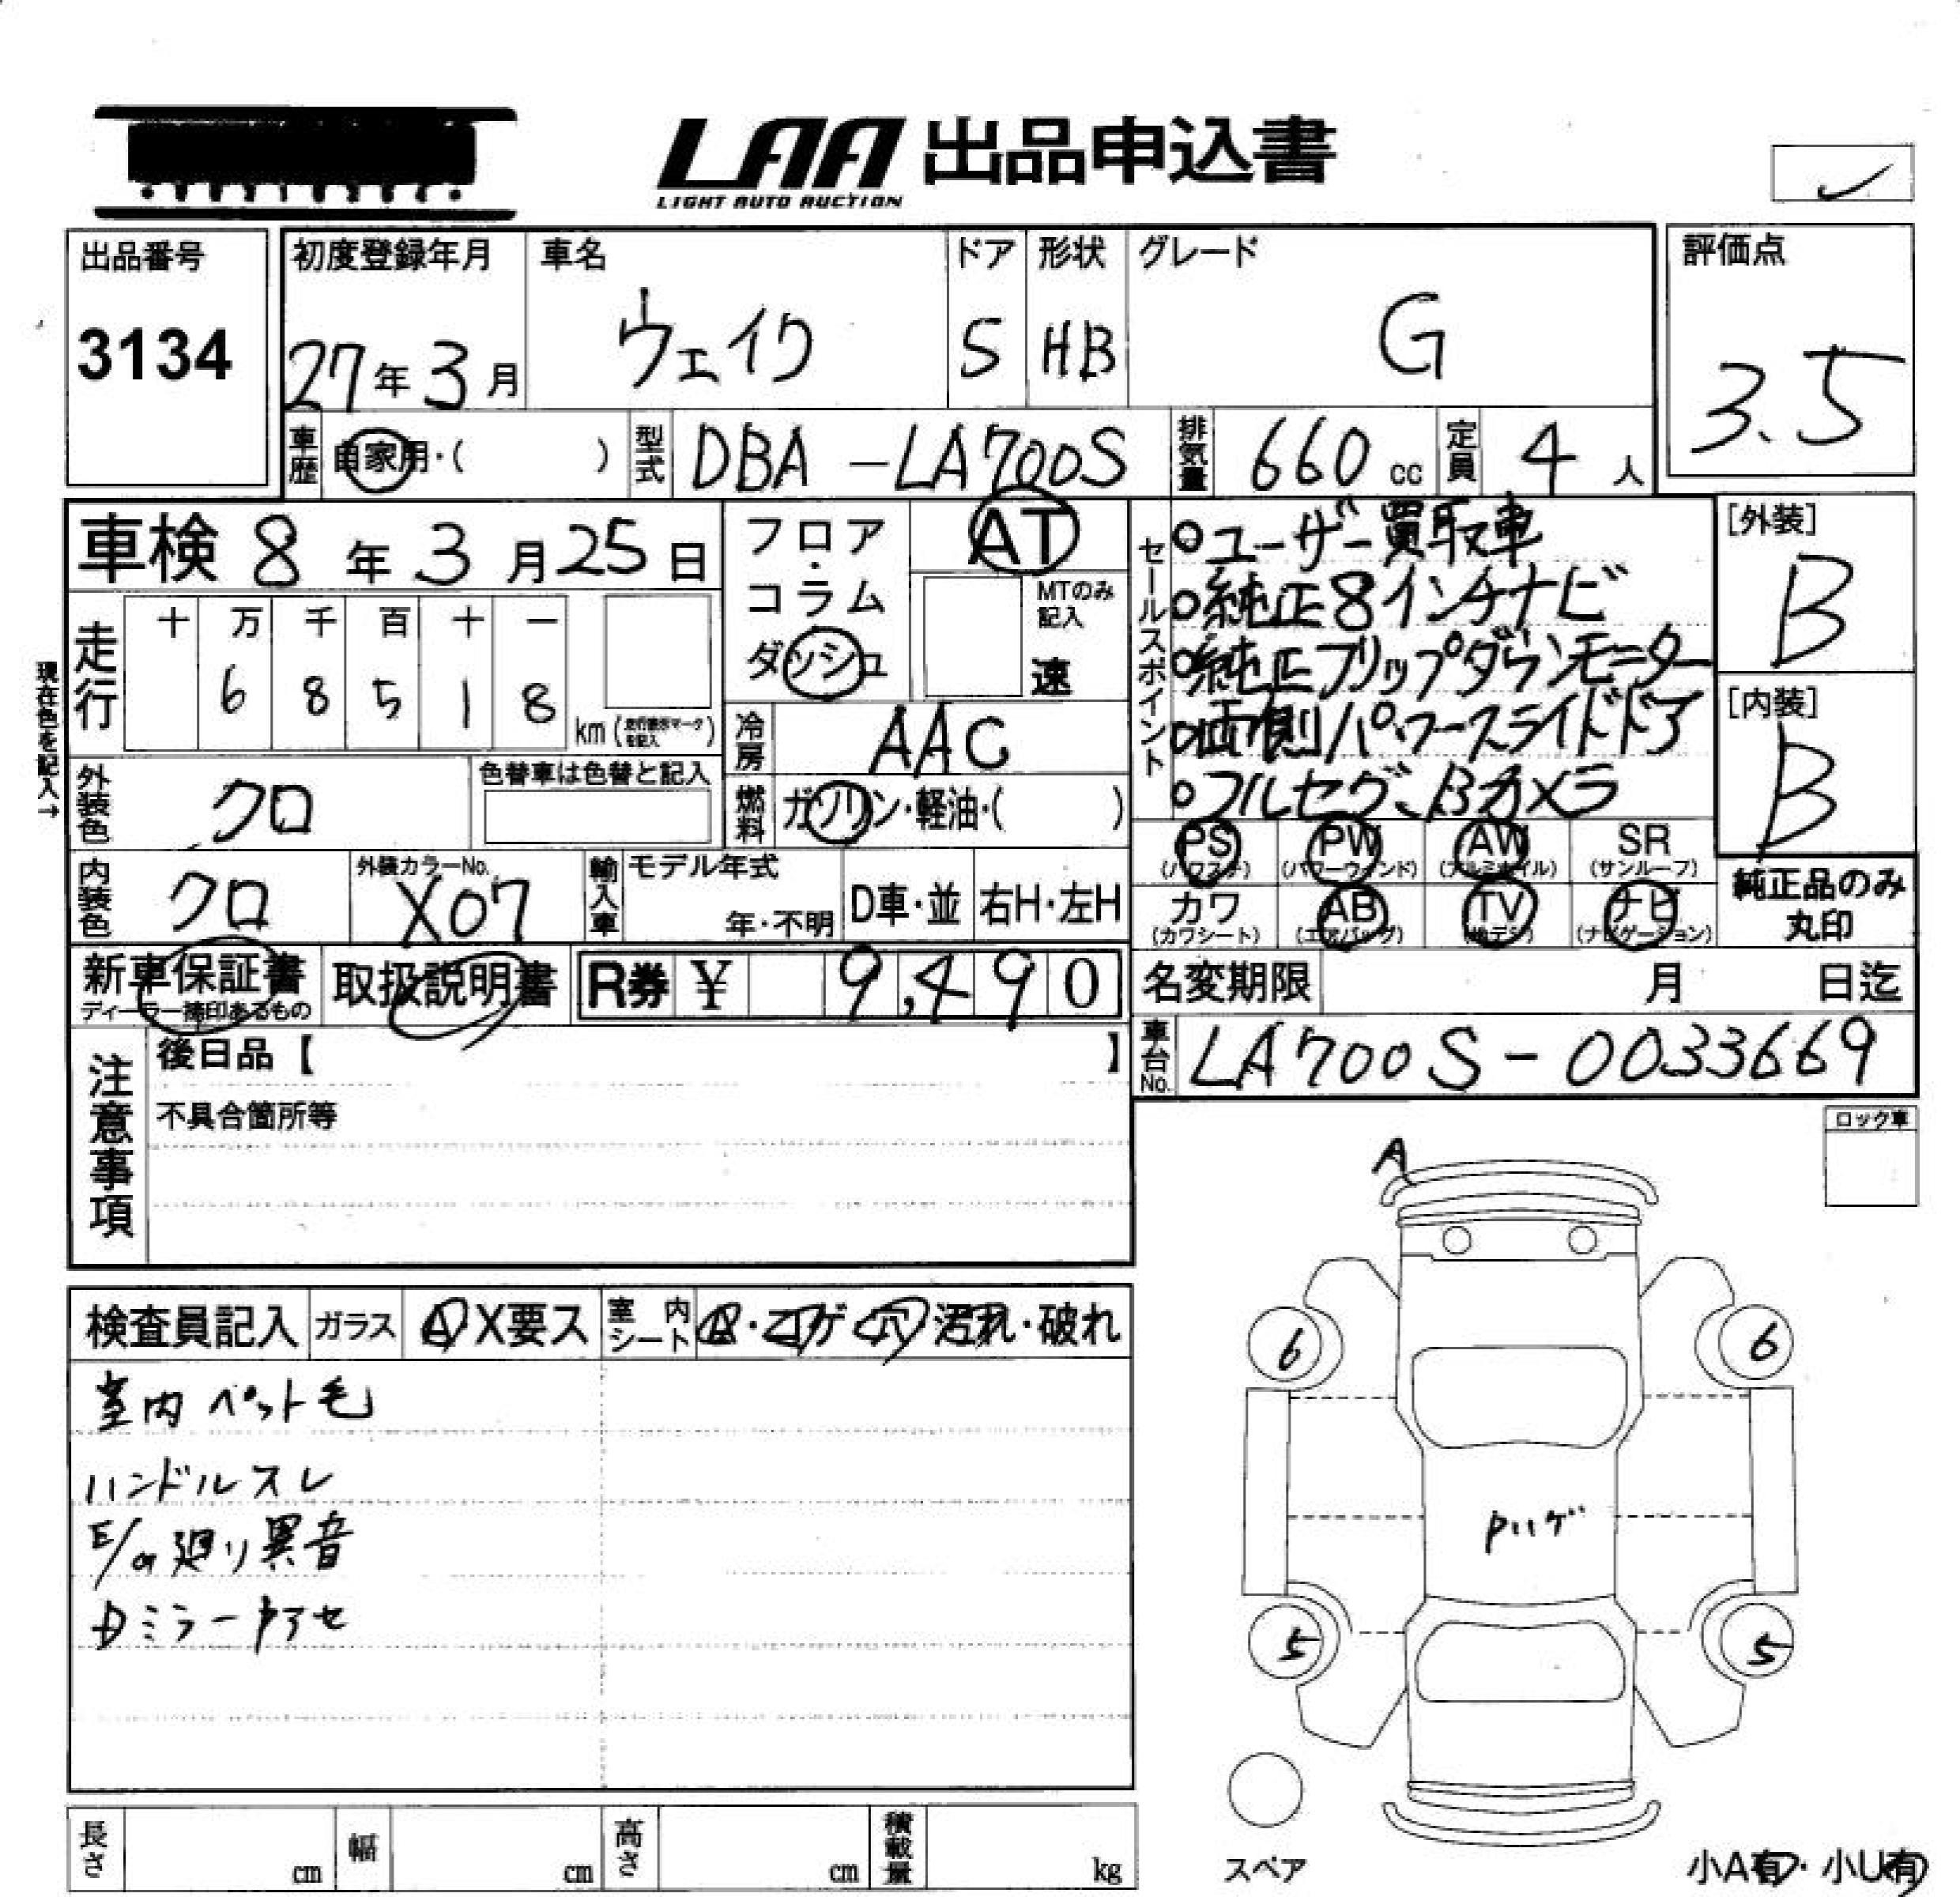 LAA 出品申込書
LIGHT AUTO AUCTION
出品番号
3134
初度登録年月
27年3月
車名
ウェイク
ドア
5
形状
HB
グレード
G
評価点
3.5
車歴
自家用・( )
型式
DBA-LA700S
排気量
660cc
定員
4人
車検 8年3月25日
フロア・コラム
ダッシュ
AT
MTのみ記入
速
セールスポイント
○ユーザー買取車
○純正8インチナビ
○純正フリップダウンモニター
○両側パワースライドドア
○フルセグ、Bカメラ
[外装]
B
[内装]
B
現在色を記入→
走行
十 万 千 百 十 一
6 8 5 1 8
km (走行表示マークを記入)
冷房
AAC
外装色
クロ
色替車は色替と記入
燃料
ガソリン・軽油・( )
PS
(パワステ)
PW
(パワーウィンド)
AW
(アルミホイル)
SR
(サンルーフ)
カワ
(カワシート)
AB
(エアバッグ)
TV
(地デジ)
ナビ
(ナビゲーション)
純正品のみ
丸印
内装色
クロ
外装カラーNo.
X07
輸入車
モデル年式
年・不明
D車・並
右H・左H
新車保証書
ディーラー捺印あるもの
取扱説明書
R券 ¥ 9,490
名変期限 月 日迄
車台No.
LA700S-0033669
注意事項
後日品【 】
不具合箇所等
ロック車
A
検査員記入
ガラス
A X要ス
室内シート
・コゲ・穴・汚れ・破れ
室内ペット毛
ハンドルスレ
E/G廻り異音
Dミラー
6
6
Pハゲ
5
5
長さ cm
幅 cm
高さ cm
積載量 kg
スペア
小A有・小U有